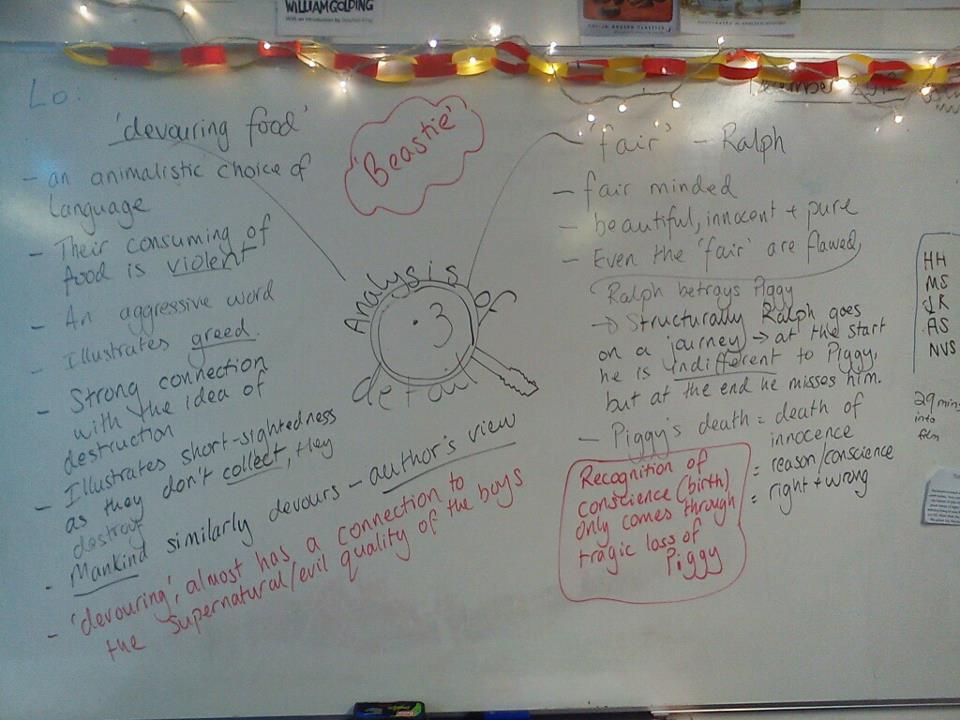 WILLIAM GOLDING
With an introduction by Stephen King
Lo:
'devouring food'
- an animalistic choice of
language
- Their consuming of
food is violent
- An aggressive word
- Illustrates greed.
- Strong connection
with the idea of
destruction
- Illustrates short-sightedness
as they don't collect, they
destroy
- Mankind similarly devours - author's view
- 'devouring', almost has a connection to
the supernatural/evil quality of the boys
'Beastie'
Analysis of
3
detail
'fair' - Ralph
- fair minded
- beautiful, innocent + pure
- Even the 'fair' are flawed,
Ralph betrays Piggy
→ Structurally Ralph goes
on a journey → at the start
he is indifferent to Piggy,
but at the end he misses him.
- Piggy's death = death of
innocence
= reason/conscience
= right + wrong
Recognition of
conscience (birth)
only comes through
tragic loss of
Piggy
HH
MS
JR
AS
NVS
29 mins
into
film